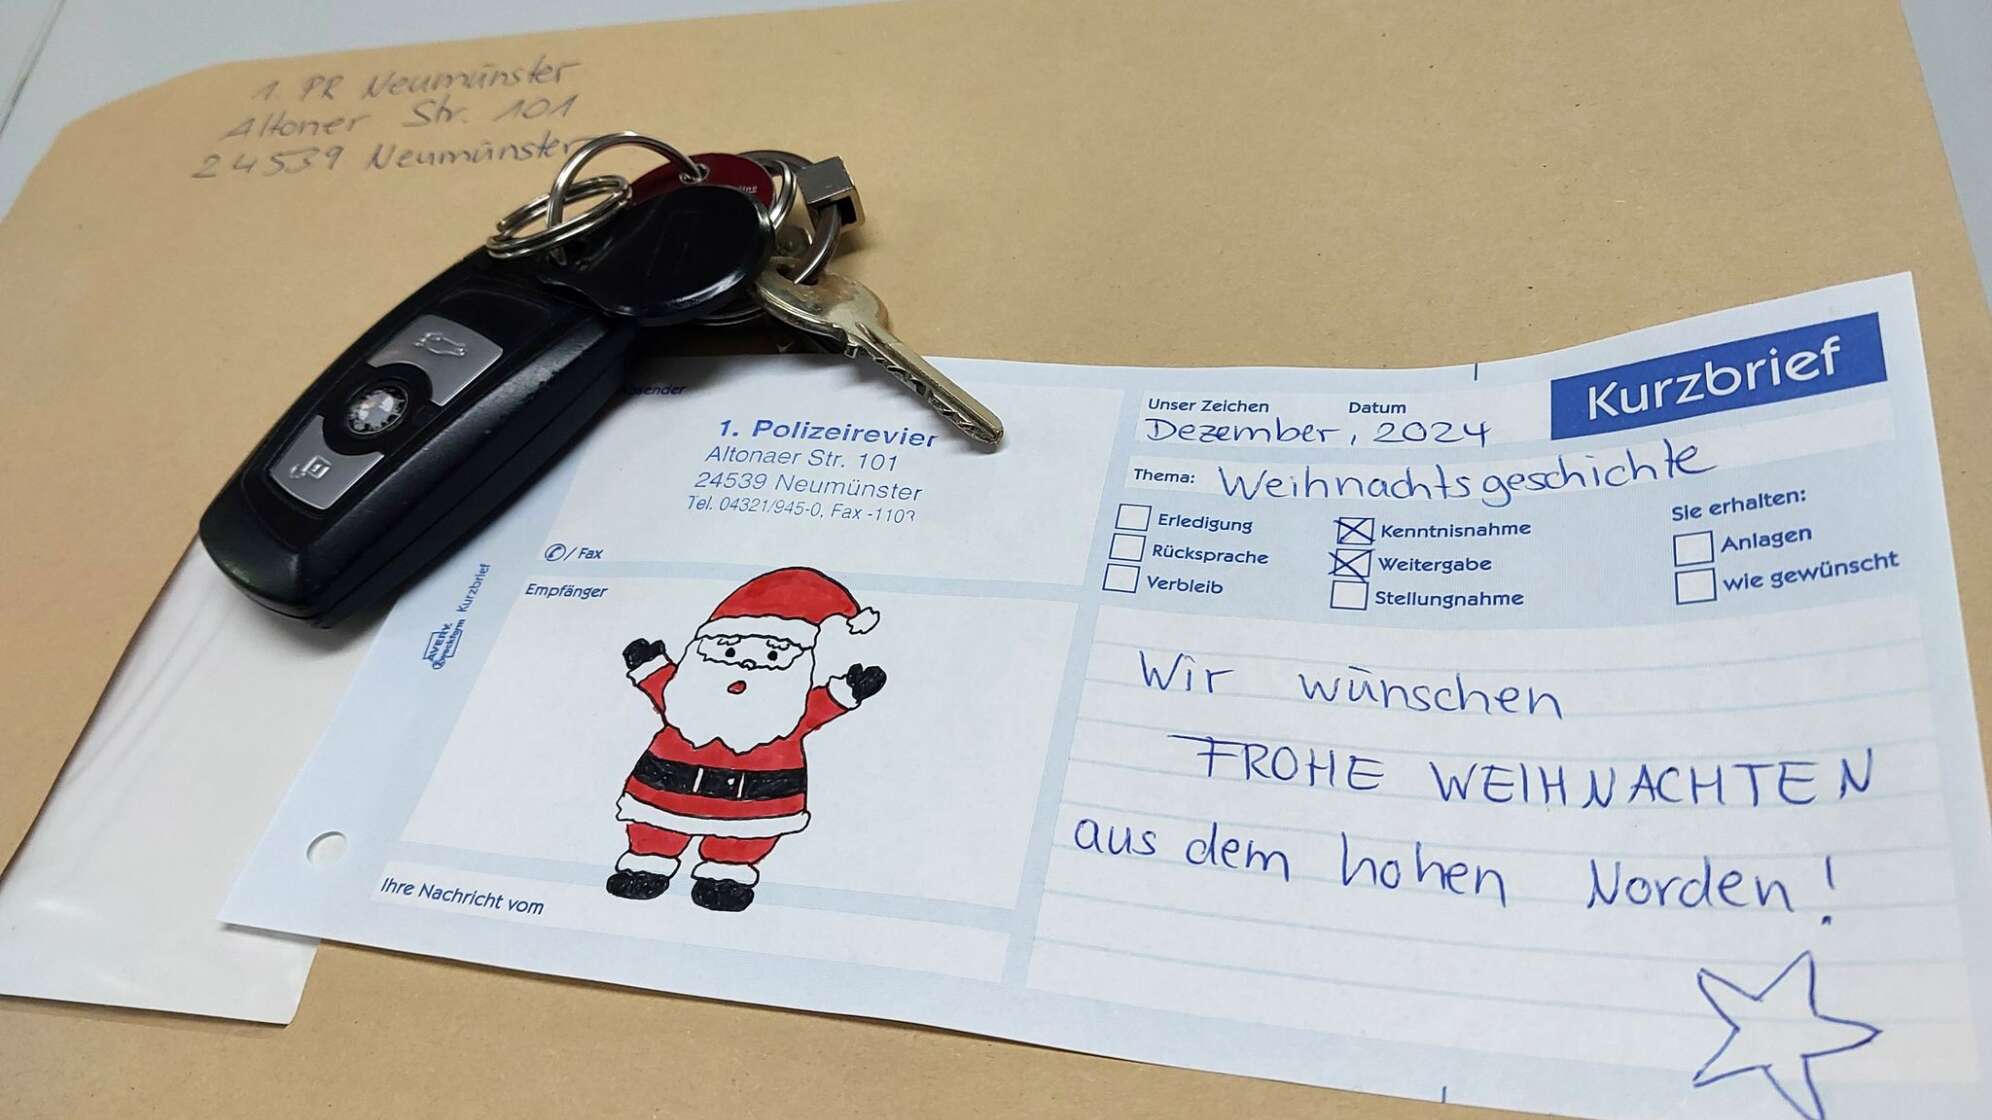 1. PR Neumünster
Altoner Str. 101
24539 Neumünster
1. Polizeirevier
Altonaer Str. 101
24539 Neumünster
Tel. 04321/945-0, Fax -1103
✆/ Fax
Empfänger
Ihre Nachricht vom
AVERY
Zweckform Kurzbrief
Kurzbrief
Unser Zeichen Datum
Dezember, 2024
Thema: Weihnachtsgeschichte
Erledigung
Rücksprache
Verbleib
Kenntnisnahme
Weitergabe
Stellungnahme
Sie erhalten:
Anlagen
wie gewünscht
Wir wünschen
FROHE WEIHNACHTEN
aus dem hohen Norden!